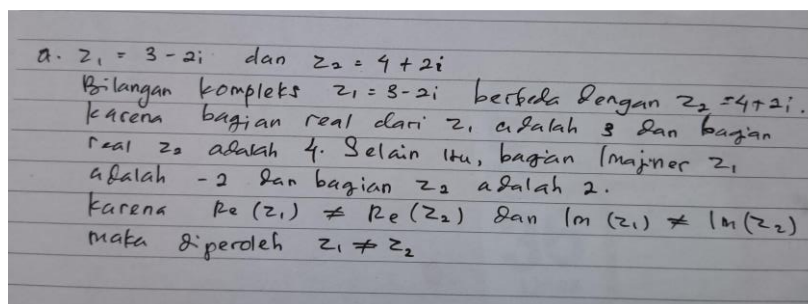 a. z₁ = 3 - 2i dan z₂ = 4 + 2i
Bilangan kompleks z₁ = 3 - 2i berbeda dengan z₂ = 4 + 2i.
karena bagian real dari z₁ adalah 3 dan bagian
real z₂ adalah 4. Selain itu, bagian Imajiner z₁
adalah - 2 dan bagian z₂ adalah 2.
karena Re (z₁) ≠ Re (z₂) dan Im (z₁) ≠ Im (z₂)
maka diperoleh z₁ ≠ z₂